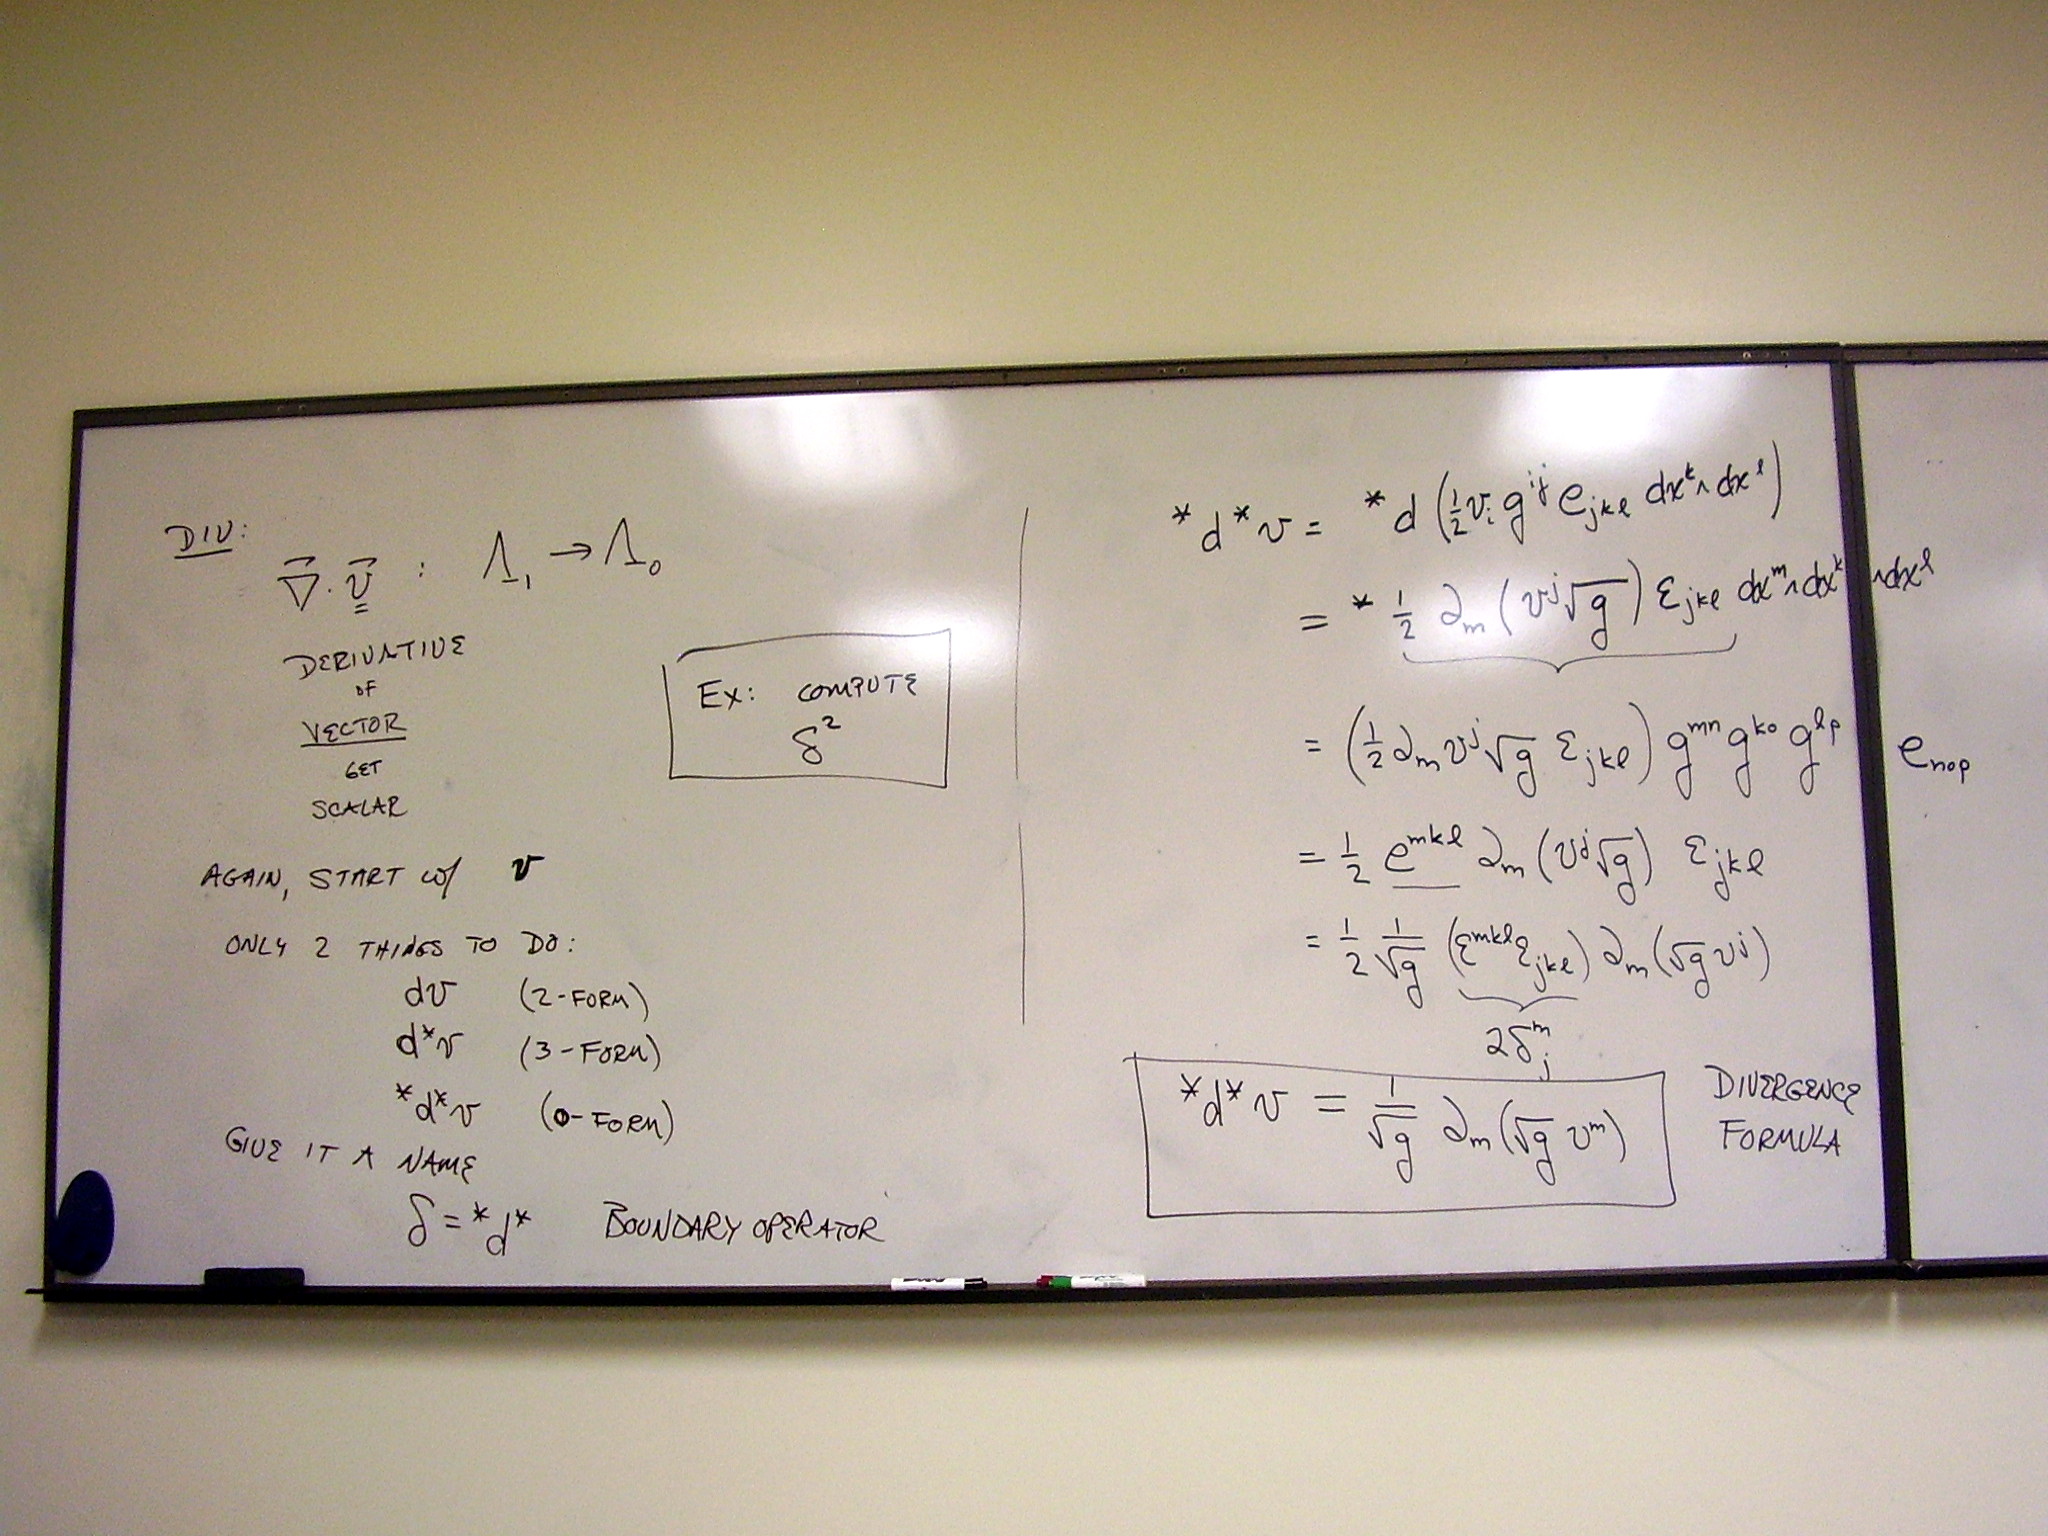 DIV:
∇⃗ · v⃗ : Λ₁ → Λ₀
DERIVATIVE
OF
VECTOR
GET
SCALAR
Ex: COMPUTE
δ²
AGAIN, START w/ v
ONLY 2 THINGS TO DO:
dv (2-FORM)
d*v (3-FORM)
*d*v (0-FORM)
GIVE IT A NAME
δ = *d* BOUNDARY OPERATOR
*d*v = *d (½ v_i g^{ij} e_{jkl} dx^k ∧ dx^l)
= * ½ ∂_m (v^j √g) ε_{jkl} dx^m ∧ dx^k ∧ dx^l
= (½ ∂_m v^j √g ε_{jkl}) g^{mn} g^{ko} g^{lp} e_{nop}
= ½ e^{mkl} ∂_m (v^j √g) ε_{jkl}
= ½ 1/√g (ε^{mkl} ε_{jkl}) ∂_m (√g v^j)
2δ^m_j
*d*v = 1/√g ∂_m (√g v^m)
DIVERGENCE
FORMULA